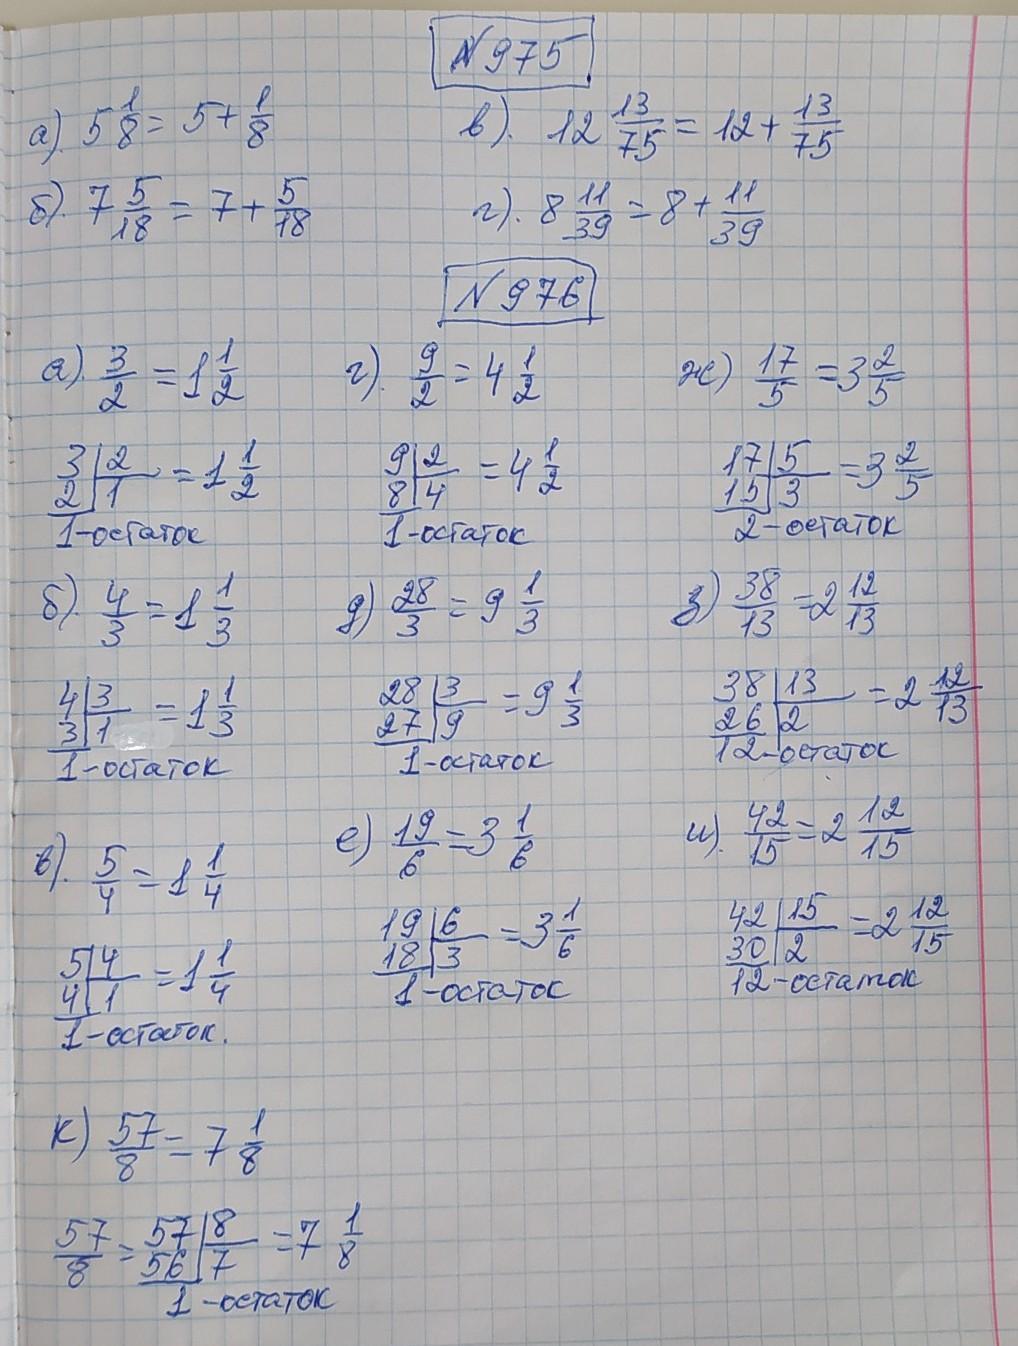 N 975
а). 5 1/8 = 5 + 1/8
в). 12 13/75 = 12 + 13/75
б). 7 5/18 = 7 + 5/18
г). 8 11/39 = 8 + 11/39
N 976
а). 3/2 = 1 1/2
г). 9/2 = 4 1/2
ж) 17/5 = 3 2/5
3 | 2 = 1 1/2
2 | 1
1-остаток
9 | 2 = 4 1/2
8 | 4
1-остаток
17 | 5 = 3 2/5
15 | 3
2-остаток
б). 4/3 = 1 1/3
д) 28/3 = 9 1/3
з) 38/13 = 2 12/13
4 | 3 = 1 1/3
3 | 1
1-остаток
28 | 3 = 9 1/3
27 | 9
1-остаток
38 | 13 = 2 12/13
26 | 2
12-остаток
в). 5/4 = 1 1/4
е) 19/6 = 3 1/6
и). 42/15 = 2 12/15
5 | 4 = 1 1/4
4 | 1
1-остаток.
19 | 6 = 3 1/6
18 | 3
1-остаток
42 | 15 = 2 12/15
30 | 2
12-остаток
к) 57/8 = 7 1/8
57/8 = 57 | 8 = 7 1/8
56 | 7
1-остаток